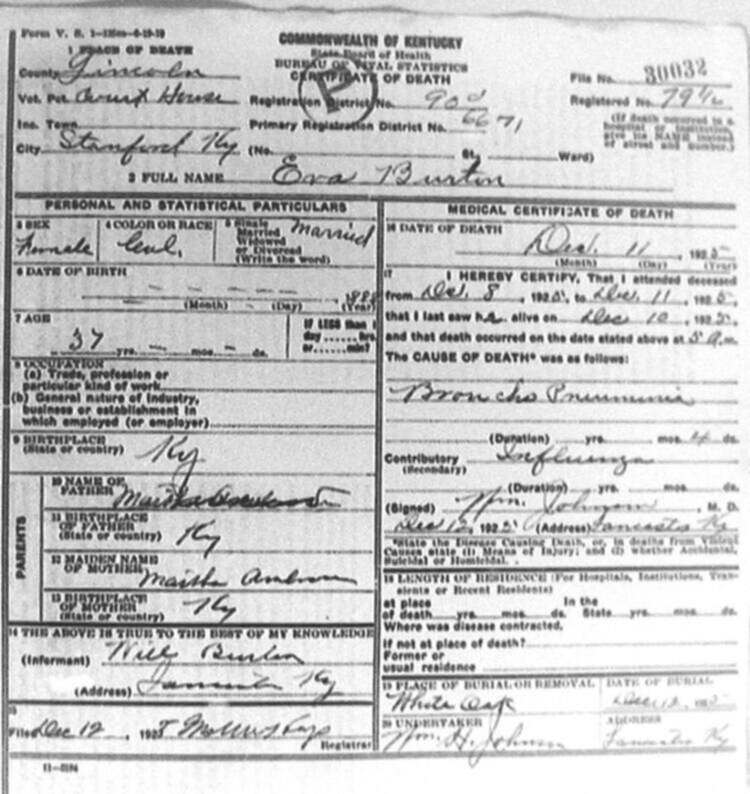 Form V. S. 1-
COMMONWEALTH OF KENTUCKY
State Board of Health
BUREAU OF VITAL STATISTICS
CERTIFICATE OF DEATH
1 PLACE OF DEATH
County Lincoln
File No. 30032
Vot. Pct. Court House
Registration District No. 90
Registered No. 79
Inc. Town
Primary Registration District No. 6671
(If death occurred in a hospital or institution, give its NAME instead of street and number.)
City Stanford Ky (No. St., Ward)
2 FULL NAME Eva Burton
PERSONAL AND STATISTICAL PARTICULARS
3 SEX Female
4 COLOR OR RACE Col.
5 Single Married Widowed or Divorced (Write the word) Married
6 DATE OF BIRTH
(Month) (Day) 1888 (Year)
7 AGE
37 yrs. — mos. — ds.
If LESS than 1 day hrs. or min?
8 OCCUPATION
(a) Trade, profession or
particular kind of work
(b) General nature of industry,
business or establishment in
which employed (or employer)
9 BIRTHPLACE
(State or country) Ky
PARENTS
10 NAME OF
FATHER
11 BIRTHPLACE
OF FATHER
(State or country) Ky
12 MAIDEN NAME
OF MOTHER
Martha
13 BIRTHPLACE
OF MOTHER
(State or country) Ky
14 THE ABOVE IS TRUE TO THE BEST OF MY KNOWLEDGE
(Informant) Will Burton
(Address) Lancaster Ky
15
Filed Dec 12, 1925
Registrar
11-3184
MEDICAL CERTIFICATE OF DEATH
16 DATE OF DEATH
Dec. 11, 1925
(Month) (Day) (Year)
17 I HEREBY CERTIFY, That I attended deceased
from Dec. 8, 1925, to Dec. 11, 1925,
that I last saw her alive on Dec 10, 1925,
and that death occurred on the date stated above at 5 a.m.
The CAUSE OF DEATH* was as follows:
Broncho Pneumonia
(Duration) yrs. mos. 4 ds.
Contributory Influenza
(Secondary)
(Duration) yrs. mos. ds.
(Signed) Wm. Johnson, M. D.
Dec 12, 1925 (Address) Lancaster Ky
*State the Disease Causing Death, or, in deaths from Violent
Causes state (1) Means of Injury; and (2) whether Accidental,
Suicidal or Homicidal.
18 LENGTH OF RESIDENCE (For Hospitals, Institutions, Tran-
sients or Recent Residents)
at place In the
of death yrs. mos. ds. State yrs. mos. ds.
Where was disease contracted,
if not at place of death?
Former or
usual residence
19 PLACE OF BURIAL OR REMOVAL
White Oak
DATE OF BURIAL
Dec 12, 1925
20 UNDERTAKER
Wm. H. Johnson
ADDRESS
Lancaster Ky